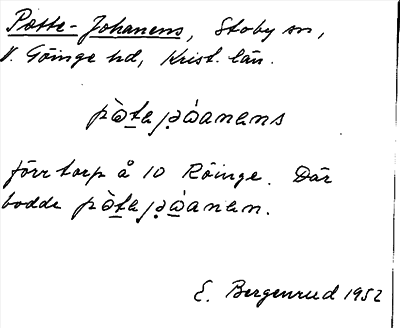 Potte-Johanens, Stoby sn,
V. Göinge hd, Krist. län.
pàta jòanans
förr torp å 10 Röinge. Där
bodde pàta jòanan.
E. Bergenrud 1952